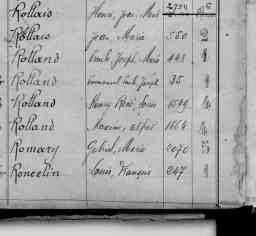 Rollais Henri, Jean, Marie
Rollais Jean Marie 550 2
Rolland Emile, Joseph, Marie 1
Rolland Emmanuel Emile Joseph 35 1
Rolland Henry René, Louis 4
Rolland Maxime, Alfred 1664 4
Romary Gabriel, Marie 2070 5
Roncelin Louis, François 247 1